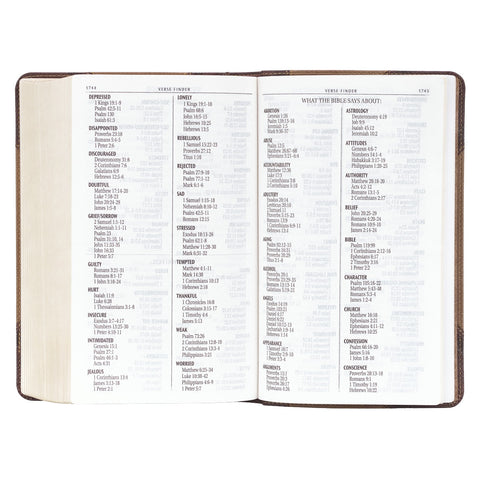 1744
VERSE FINDER
DEPRESSED
1 Kings 19:1-9
Psalm 42:5-11
Psalm 130
Isaiah 61:3
DISAPPOINTED
Psalm 22:4-5
Romans 5:4-5
1 Peter 2:6
DISCOURAGED
Deuteronomy 31:8
2 Corinthians 7:6
Galatians 6:9
Hebrews 12:5-6
DOUBTFUL
Matthew 17:14-20
Luke 7:18-28
John 20:24-31
James 1:5-8
GRIEF/SORROW
1 Samuel 1:1-12
Nehemiah 1:1-11
Psalm 23
Psalm 31:10, 14
John 11:33-35
John 16:33
1 Peter 5:7
GUILTY
Romans 3:23-31
Romans 8:1-17
1 John 3:16-24
HURT
Isaiah 11:9
Luke 6:28
1 Thessalonians 3:1-8
INSECURE
Exodus 3:7-4:17
Numbers 13:25-30
1 Peter 4:10-11
INTIMIDATED
Genesis 15:1
Psalm 27:1
Psalm 46:1-3
Acts 4:31
JEALOUS
1 Corinthians 13:4
James 3:13-18
LONELY
1 Kings 19:1-18
Psalm 68:6
John 16:5-15
Hebrews 10:25
Hebrews 13:5
REBELLIOUS
1 Samuel 15:22-23
Proverbs 27:12
Titus 1:16
REJECTED
Psalm 27:9-10
Psalm 77:1-5
Mark 6:1-6
SAD
1 Samuel 1:15-18
Nehemiah 8:10-12
Psalm 42:5-11
STRESSED
Exodus 18:13-26
Psalm 62:1-8
Matthew 11:28-30
Mark 6:31-32
TEMPTED
Matthew 4:1-11
Mark 14:38
1 Corinthians 10:13
Hebrews 2:18
THANKFUL
1 Chronicles 16:8
Colossians 3:15-17
1 Timothy 4:4
James 5:13
WEAK
Psalm 73:26
2 Corinthians 12:9-10
2 Corinthians 13:3-4
Philippians 3:21
WORRIED
Matthew 6:25-34
Philippians 4:6-9
1 Peter 5:7
VERSE FINDER
1745
WHAT THE BIBLE SAYS ABOUT:
ABORTION
Genesis 1:26
Psalm 139:13-16
Jeremiah 1:5
Mark 9:36-37
ABUSE
Psalm 12:5
Matthew 26:67-68
Ephesians 5:21-6:4
ACCOUNTABILITY
Matthew 12:36
Romans 14:12
Hebrews 13:17
ADULTERY
Exodus 20:14
Leviticus 20:10
2 Samuel 11
Proverbs 5:15-23
Romans 13:9
1 Corinthians 6:9-11
Hebrews 13:4
AGING
Psalm 92:12-15
Proverbs 16:31
Proverbs 20:29
Titus 2:1-8
ALCOHOL
Proverbs 20:1
Proverbs 23:29-35
Romans 13:13-14
Galatians 5:19-21
ANGELS
Exodus 14:19
Psalm 103:21
Daniel 4:17
Daniel 6:22
Zechariah 1:9-14
Hebrews 1:14
APPEARANCE
1 Samuel 16:7
1 Timothy 2:9-10
1 Peter 3:3-4
ARGUMENTS
Proverbs 15:1
Proverbs 26:17
Ephesians 4:26-27
ASTROLOGY
Deuteronomy 4:19
Job 9:9
Isaiah 45:12
Jeremiah 10:2
ATTITUDES
Genesis 4:6-7
Numbers 14:1-4
Habakkuk 3:17-19
Philippians 2:5-11
AUTHORITY
Matthew 28:18-20
Acts 4:1-12
Romans 13:1-2
Colossians 2:9-10
BELIEF
John 20:25-29
Romans 4:20-24
Romans 10:9-10
James 2:14-24
BIBLE
Psalm 119:98
1 Corinthians 2:12-16
Ephesians 6:17
2 Timothy 3:16
1 Peter 2:2
CHARACTER
Psalm 105:16-22
Matthew 5:43-48
Romans 5:3-5
James 1:2-4
CHURCH
Matthew 16:18
Ephesians 2:11-22
Ephesians 4:11-12
Hebrews 10:25
CONFESSION
Psalm 66:18-20
James 5:16
1 John 1:8-10
CONSCIENCE
Proverbs 28:13-18
Romans 9:1
1 Timothy 1:19
Hebrews 10:22